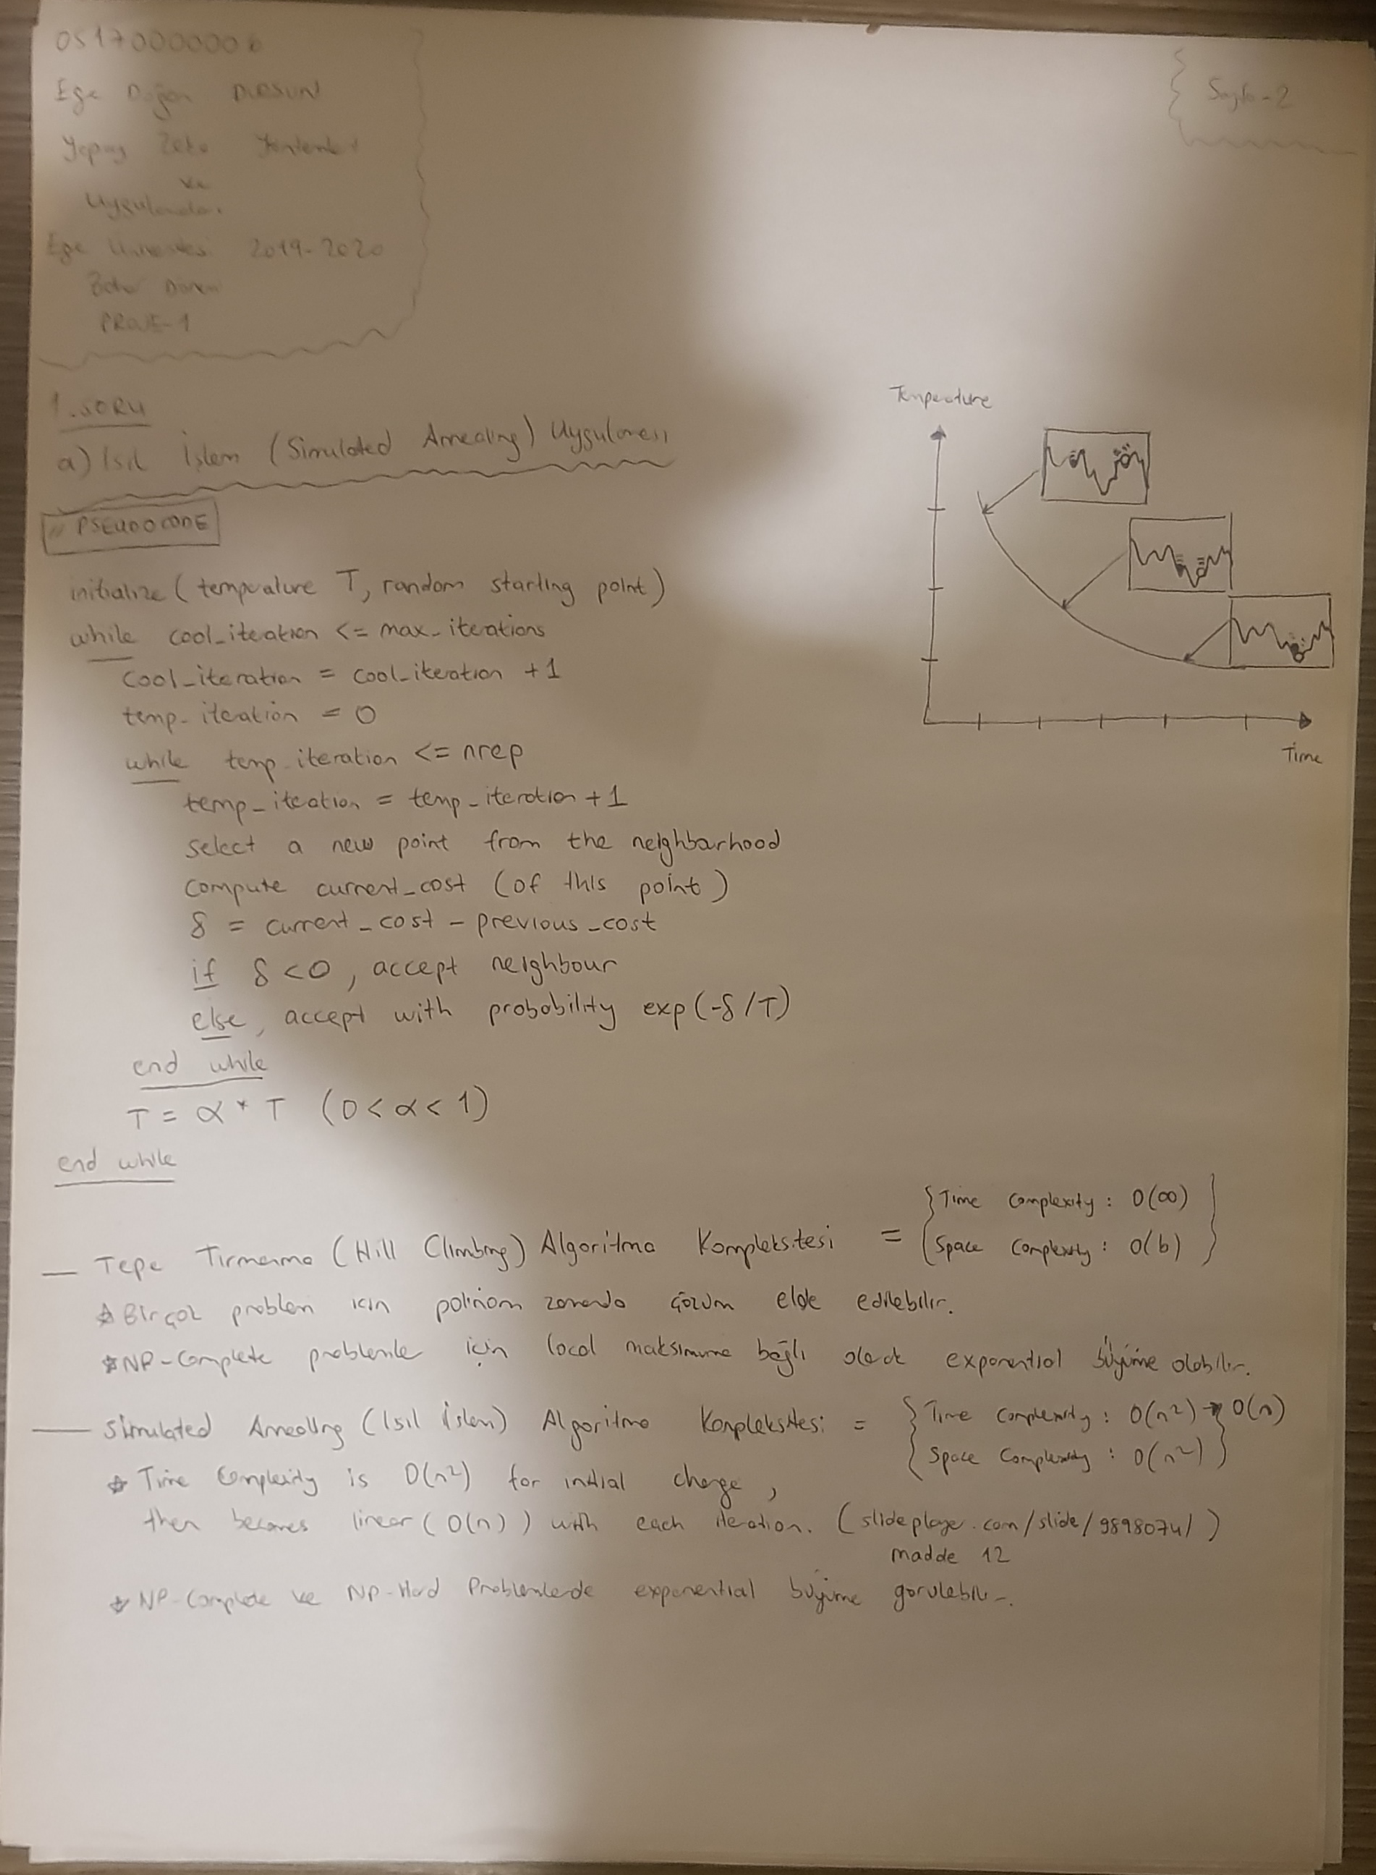 0517000006
Ege Doğan DURSUN
Yapay Zeka Yöntemleri
ve
Uygulamaları
Ege Üniversitesi 2019-2020
Bahar Dönemi
PROJE-1
Sayfa-2
1.SORU
a) Isıl İşlem (Simulated Annealing) Uygulaması
// PSEUDOCODE
initialize (temperature T, random starting point)
while cool_iteration <= max_iterations
cool_iteration = cool_iteration + 1
temp_iteration = 0
while temp_iteration <= nrep
temp_iteration = temp_iteration + 1
select a new point from the neighbourhood
compute current_cost (of this point)
δ = current_cost - previous_cost
if δ < 0, accept neighbour
else, accept with probability exp(-δ/T)
end while
T = α * T (0 < α < 1)
end while
Temperature
Time
— Tepe Tırmanma (Hill Climbing) Algoritma Kompleksitesi = { Time Complexity : O(∞)
Space Complexity : O(b) }
* Birçok problem için polinom zamanda çözüm elde edilebilir.
* NP-Complete problemler için local maksimuma bağlı olarak exponential büyüme olabilir.
— Simulated Annealing (Isıl İşlem) Algoritma Kompleksitesi = { Time Complexity : O(n²) → O(n)
Space Complexity : O(n²) }
* Time Complexity is O(n²) for initial charge,
then becomes linear (O(n)) with each iteration. (slideplayer.com/slide/9898074/)
madde 12
* NP-Complete ve NP-Hard Problemlerde exponential büyüme görülebilir.